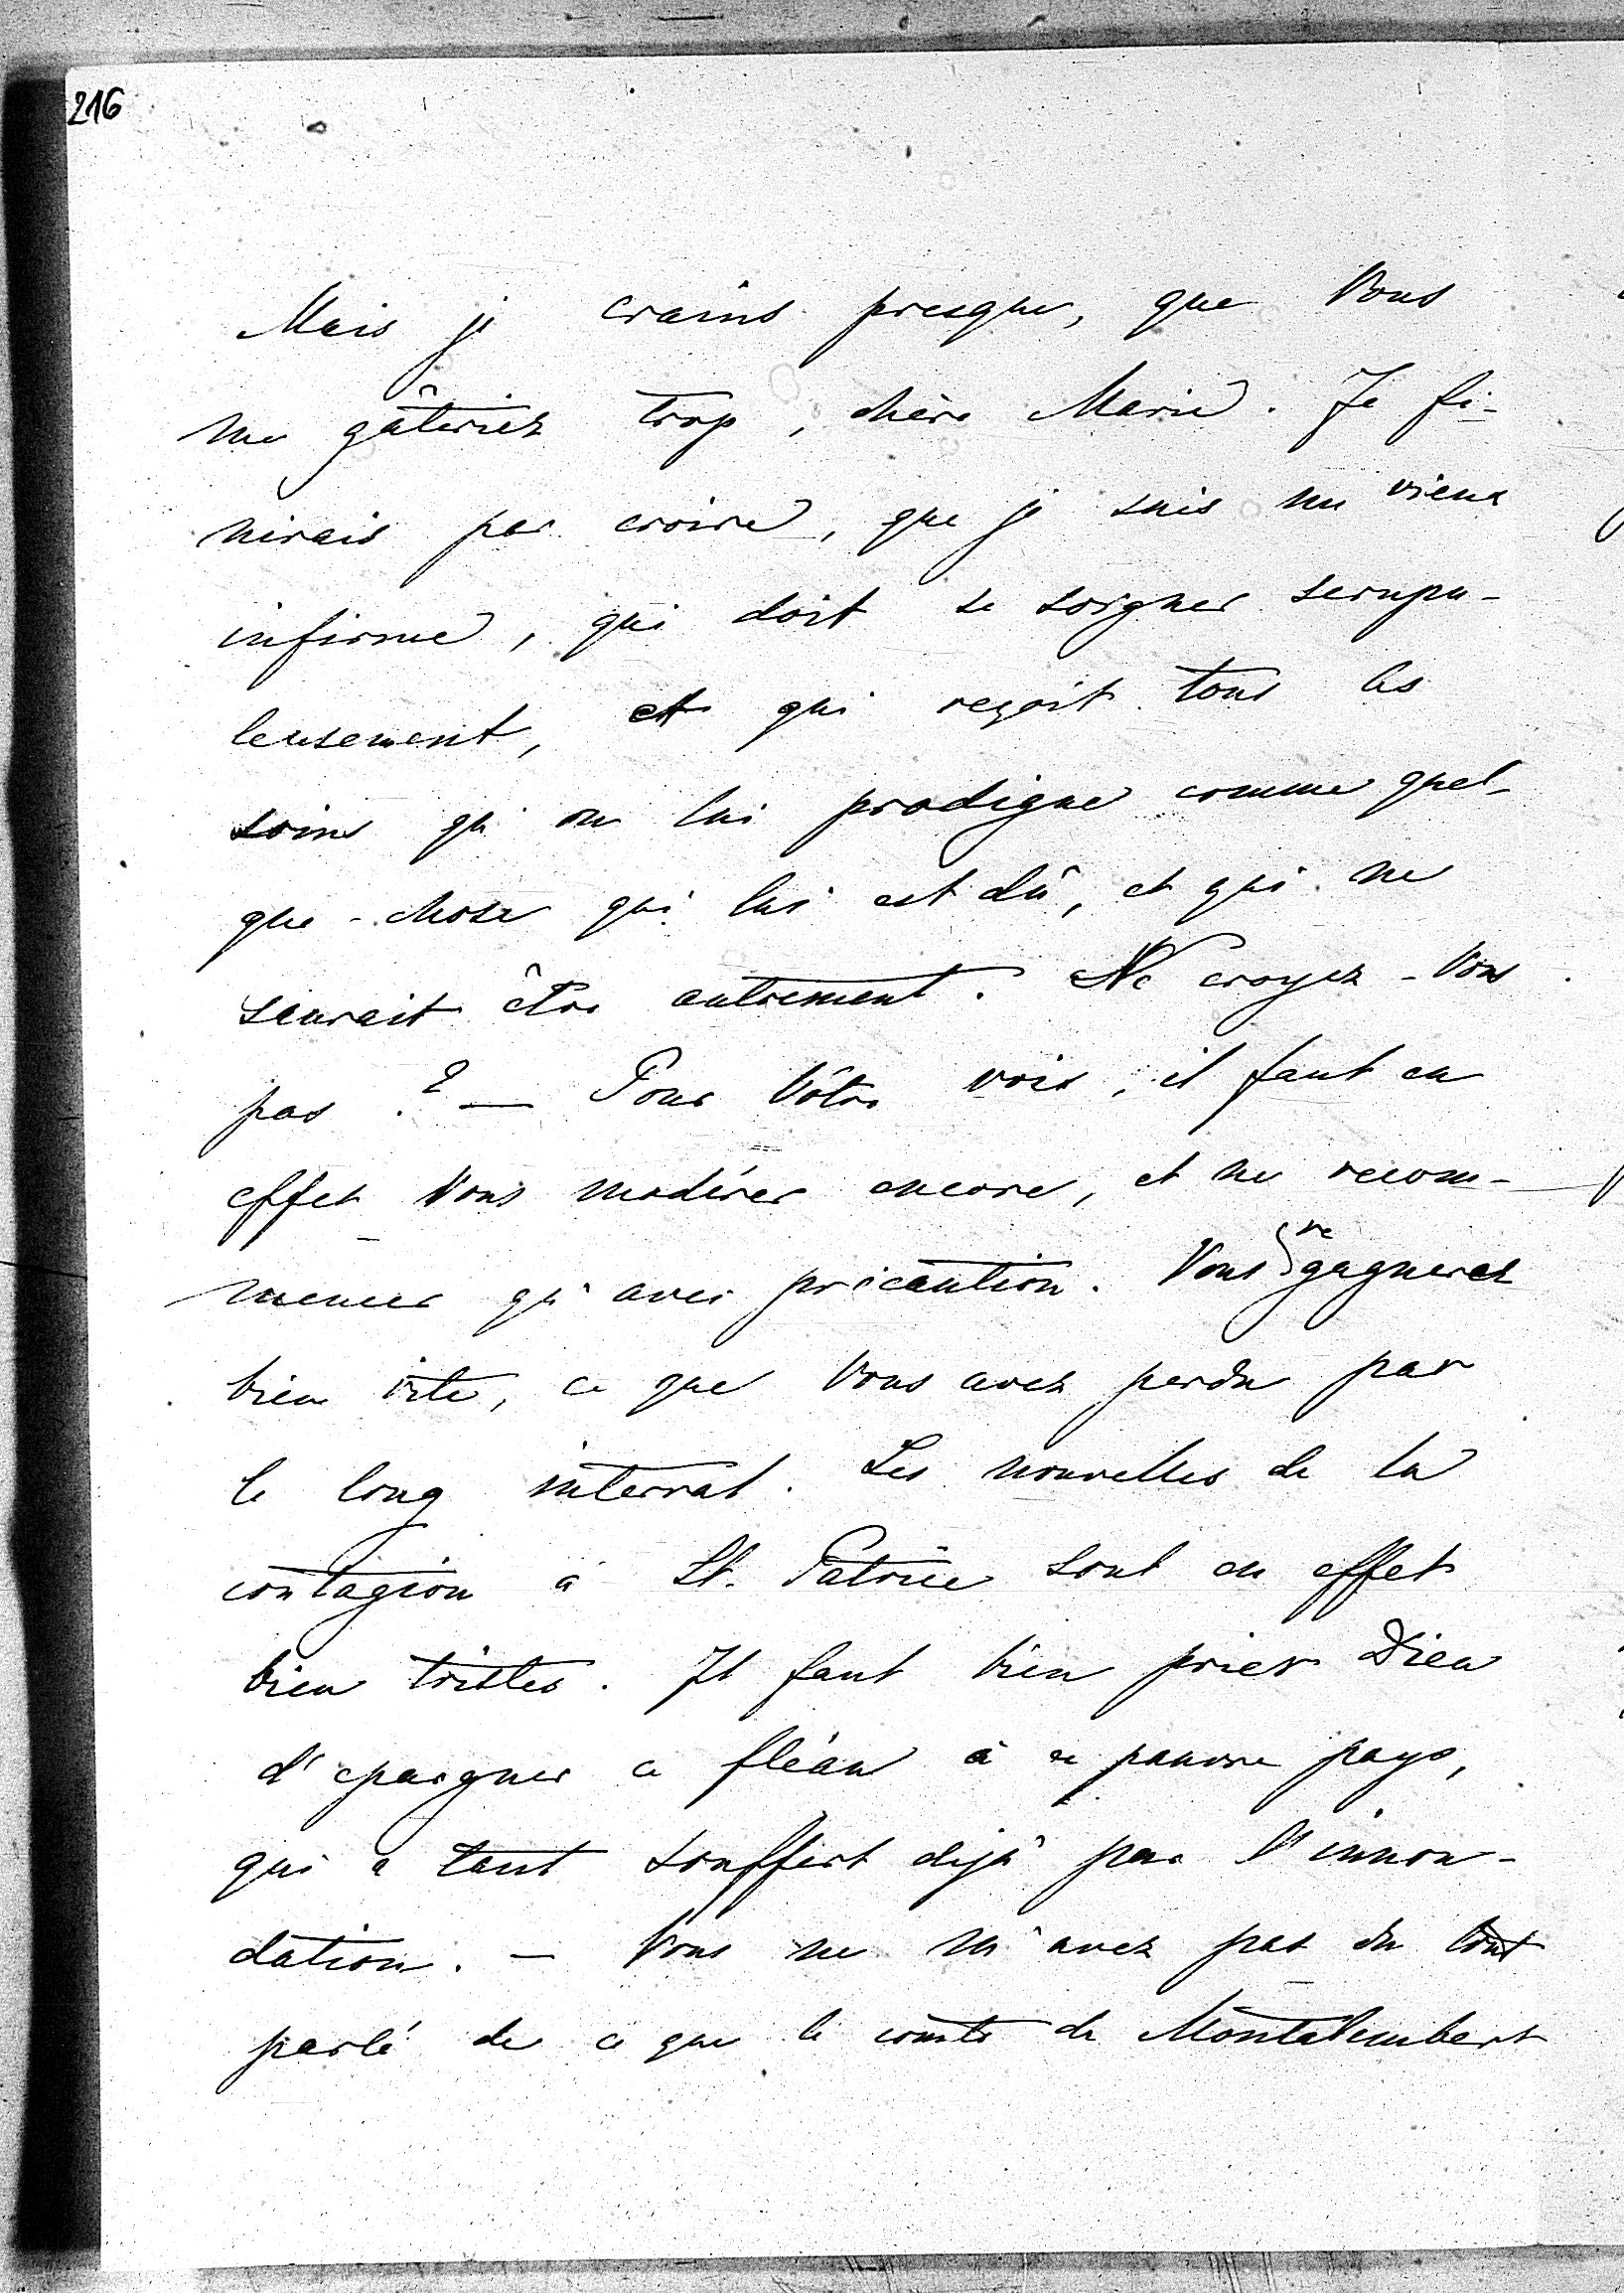 216
Mais je crains presque, que Vous
me gâteriez trop, chère Marie. Je fi-
nirais par croire, que je suis un vieux
infirme, qui doit se soigner scrupu-
leusement, et qui reçoit tous les
soins qu'on lui prodigue comme quel-
que-chose qui lui est dû, et qui ne
saurait être autrement. Ne croyez-Vous
pas ? — Pour Vôtre voix, il faut en
effet Vous modérer encore, et ne recom-
mencer qu'avec précaution. Vous re
gagnerez
bien vite, ce que Vous avez perdu par
le long interval. Les nouvelles de la
contagion à St. Patrice sont en effet
bien tristes. Il faut bien prier Dieu
d'epargner ce fléau à ce pauvre pays,
qui a tant souffert dejà par l'innon-
dation. — Vous ne m'avez pas du tout
parlé de ce que le comte de Montalembert